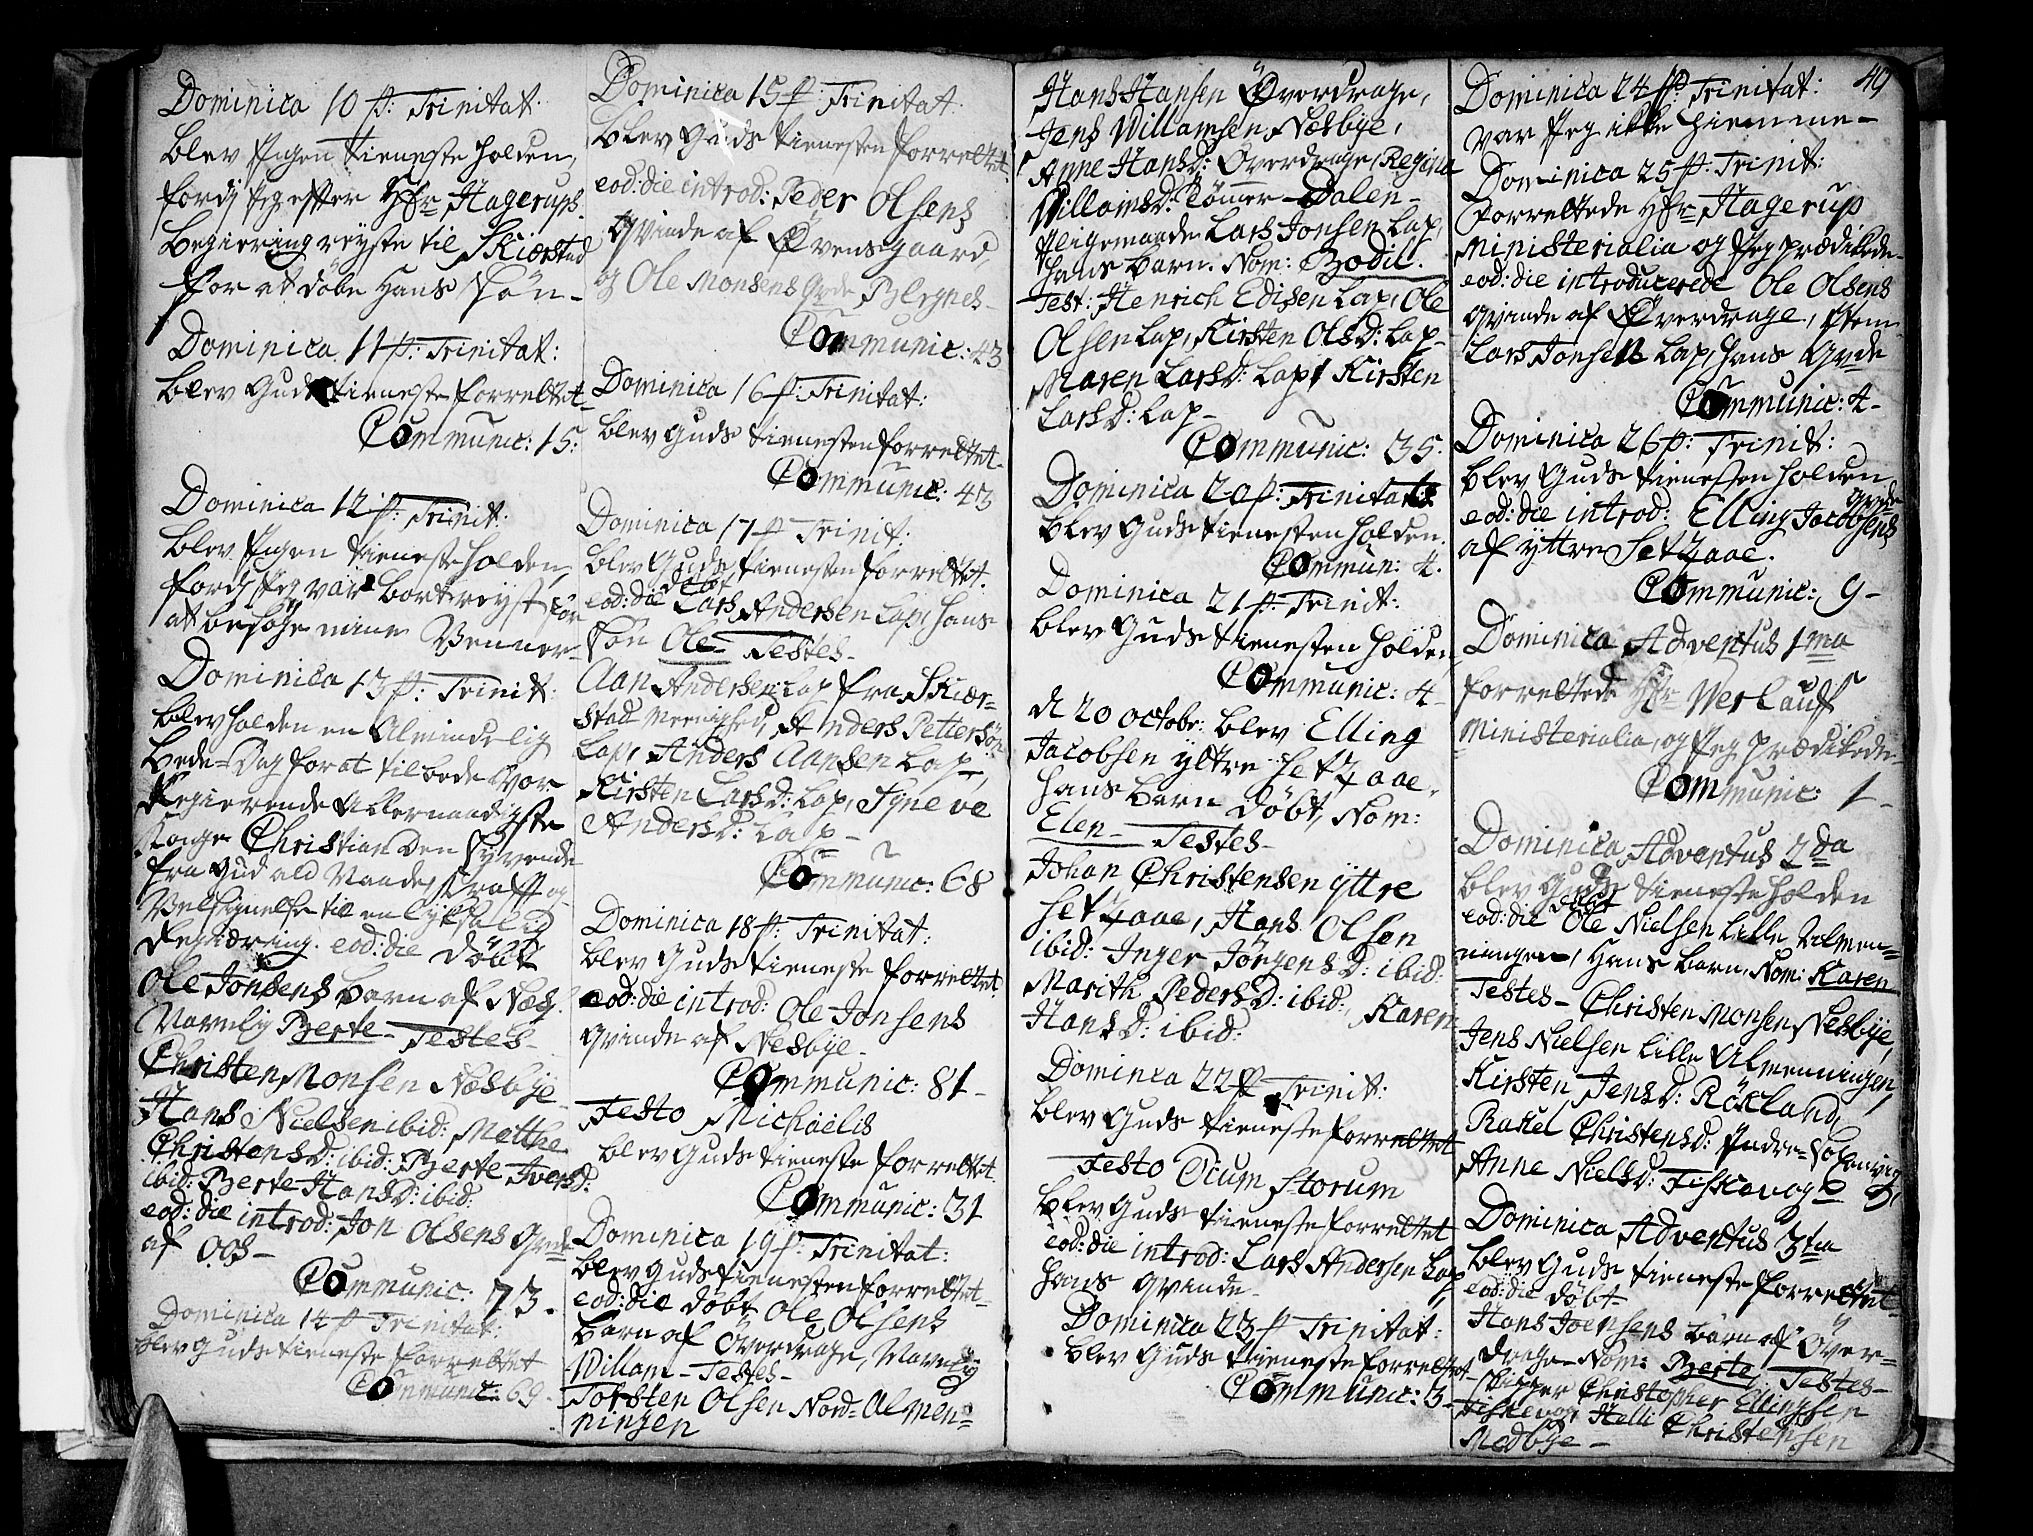 Dominica 10 p: Trinitat:
blev Ingen tieneste holden,
fordj Jeg efter Hr Hagerups
begiering reyste til Skierstad
for at döbe Hans Sön -
Dominica 11 p: Trinitat:
blev Guds tieneste forrettet -
Communic: 15:
Dominica 12 p: Trinit:
blev Ingen tieneste holden,
fordj Jeg var bortreyst for
at besøge mine Venner -
Dominica 13 p: Trinit:
blev holden en Almindelig
Bede-Dag for at tilbede vor
Regierende Allernaadigste
Konge Christian den Syvende
fra Gud ald Naade, Krafft og
Velsignelse til en lyksalig
Regiering. eod: die döbt
Ole Jonsens barn af Næs.
Navnlig Berte - Testes -
Christen Monsen Næsbye
Hans Nielsen ibid: Matthe
Christens D: ibid: Berte Ivers D:
ibid: Berte Hans D: ibid:
eod: die introd: Jon Olsens Qvde
af Oes -
Communic: 73.
Dominica 14 p Trinitat:
blev Guds tieneste forrettet
Communic: 69 -
Dominica 15 p: Trinitat.
blev Guds tienesten forrettet.
eod: die introd: Peder Olsens
Qvinde af Evensgaard,
og Ole Monsens Qvde Blegnes -
Communic: 43
Dominica 16 p: Trinitat:
blev Guds tienesten forrettet -
Communic: 43
Dominica 17 p Trinit:
blev Guds tienesten forrettet.
eod: die döbt Lars Andersen Lap, hans
Sön Ole - Testes -
Aan Andersen Lap fra Skier-
stad Meenighed, Anders Pettersön
Lap, Anders Aansen Lap,
Kirsten Lars D: Lap, Syneve
Anders D: Lap -
Communic: 68
Dominica 18 p: Trinitat:
blev Guds tieneste forrettet.
eod: die introd: Ole Jonsens
Qvinde af Nesbye -
Communic: 81 -
Festo Michaelis
blev Guds tieneste forrettet.
Communic: 31
Dominica 19 p: Trinitat:
blev Guds tienesten forrettet -
eod: die döbt Ole Olsens
barn af Överdrage, Navnlig
Willam - Testes -
Torsten Olsen Nord-Almen-
ningen
Hans Hansen Överdrage,
Jens Willamsen Næsbye,
Anne Hans D: Överdrage, Regina
Willams D: Tömmer-Dalen -
Iligemaade Lars Jonsen Lap,
hans barn. Nom: Bodil.
Test: Henrich Edisen Lap, Ole
Olsen Lap, Kirsten Ols D: Lap -
Maren Lars D: Lap, Kirsten
Lars D: Lap -
Communic: 35.
Dominica 20 p: Trinitatis
blev Guds tienesten holden.
Commun: 4.
Dominica 21 p: Trinit:
blev Guds tienesten holden,
Communic: 4 -
d 20 octobr: blev Elling
Jacobsen yttre Setzaae,
hans barn döbt, Nom:
Elen - Testes -
Johan Christensen yttre
Setzaae, Hans Olsen
ibid: Inger Jörgens D: ibid:
Marith Peders D: ibid: Karen
Hans D: ibid:
Dominca 22 p Trinit:
blev Guds tieneste forrettet
Festo Ocum Storum
blev Guds tieneste forrettet
eod: die introd: Lars Andersen Lap
hans Qvinde -
Dominica 23 p Trinitat:
blev Guds tieneste forrettet -
Communic: 3 -
49
Dominica 24 p Trinitat:
var Jeg ikke hiemme -
Dominica 25 p. Trinit:
forrettede Hr Hagerup
Ministerialia og Jeg prædikede -
eod: die introducerede Ole Olsens
Qvinde af Överdrage, Item
Lars Jonsen Lap, hans Qvde
Communic: 4 -
Dominica 26 p: Trinit:
blev Guds tienesten holden
eod: die introd: Elling Jacobsens Qvinde
af yttre Setzaae.
Communic: 9 -
Dominica Adventus 1ma
forrettede Hr Werlauff
Ministerialia, og Jeg prædikede -
Communic: 1 -
Dominica Adventus 2da
blev Guds tieneste holden
eod: die döbt Ole Nielsen Lille Almen-
ningen, Hans barn, Nom: Karen
Testes - Christen Monsen Nesbye,
Jens Nielsen Lille Almenningen,
Kirsten Jens D: Röcland,
Rakel Christens D: Indre-Solenvig
Anne Niels D: Fiskevog
Dominica Adventus 3tia
blev Guds tieneste forrettet
eod: die döbt -
Hans Joensens barn af Över-
drage - Nom: Berte, Testes -
Christopher Ellingsen
Fiskevog, Helli Christensen
Medbye -